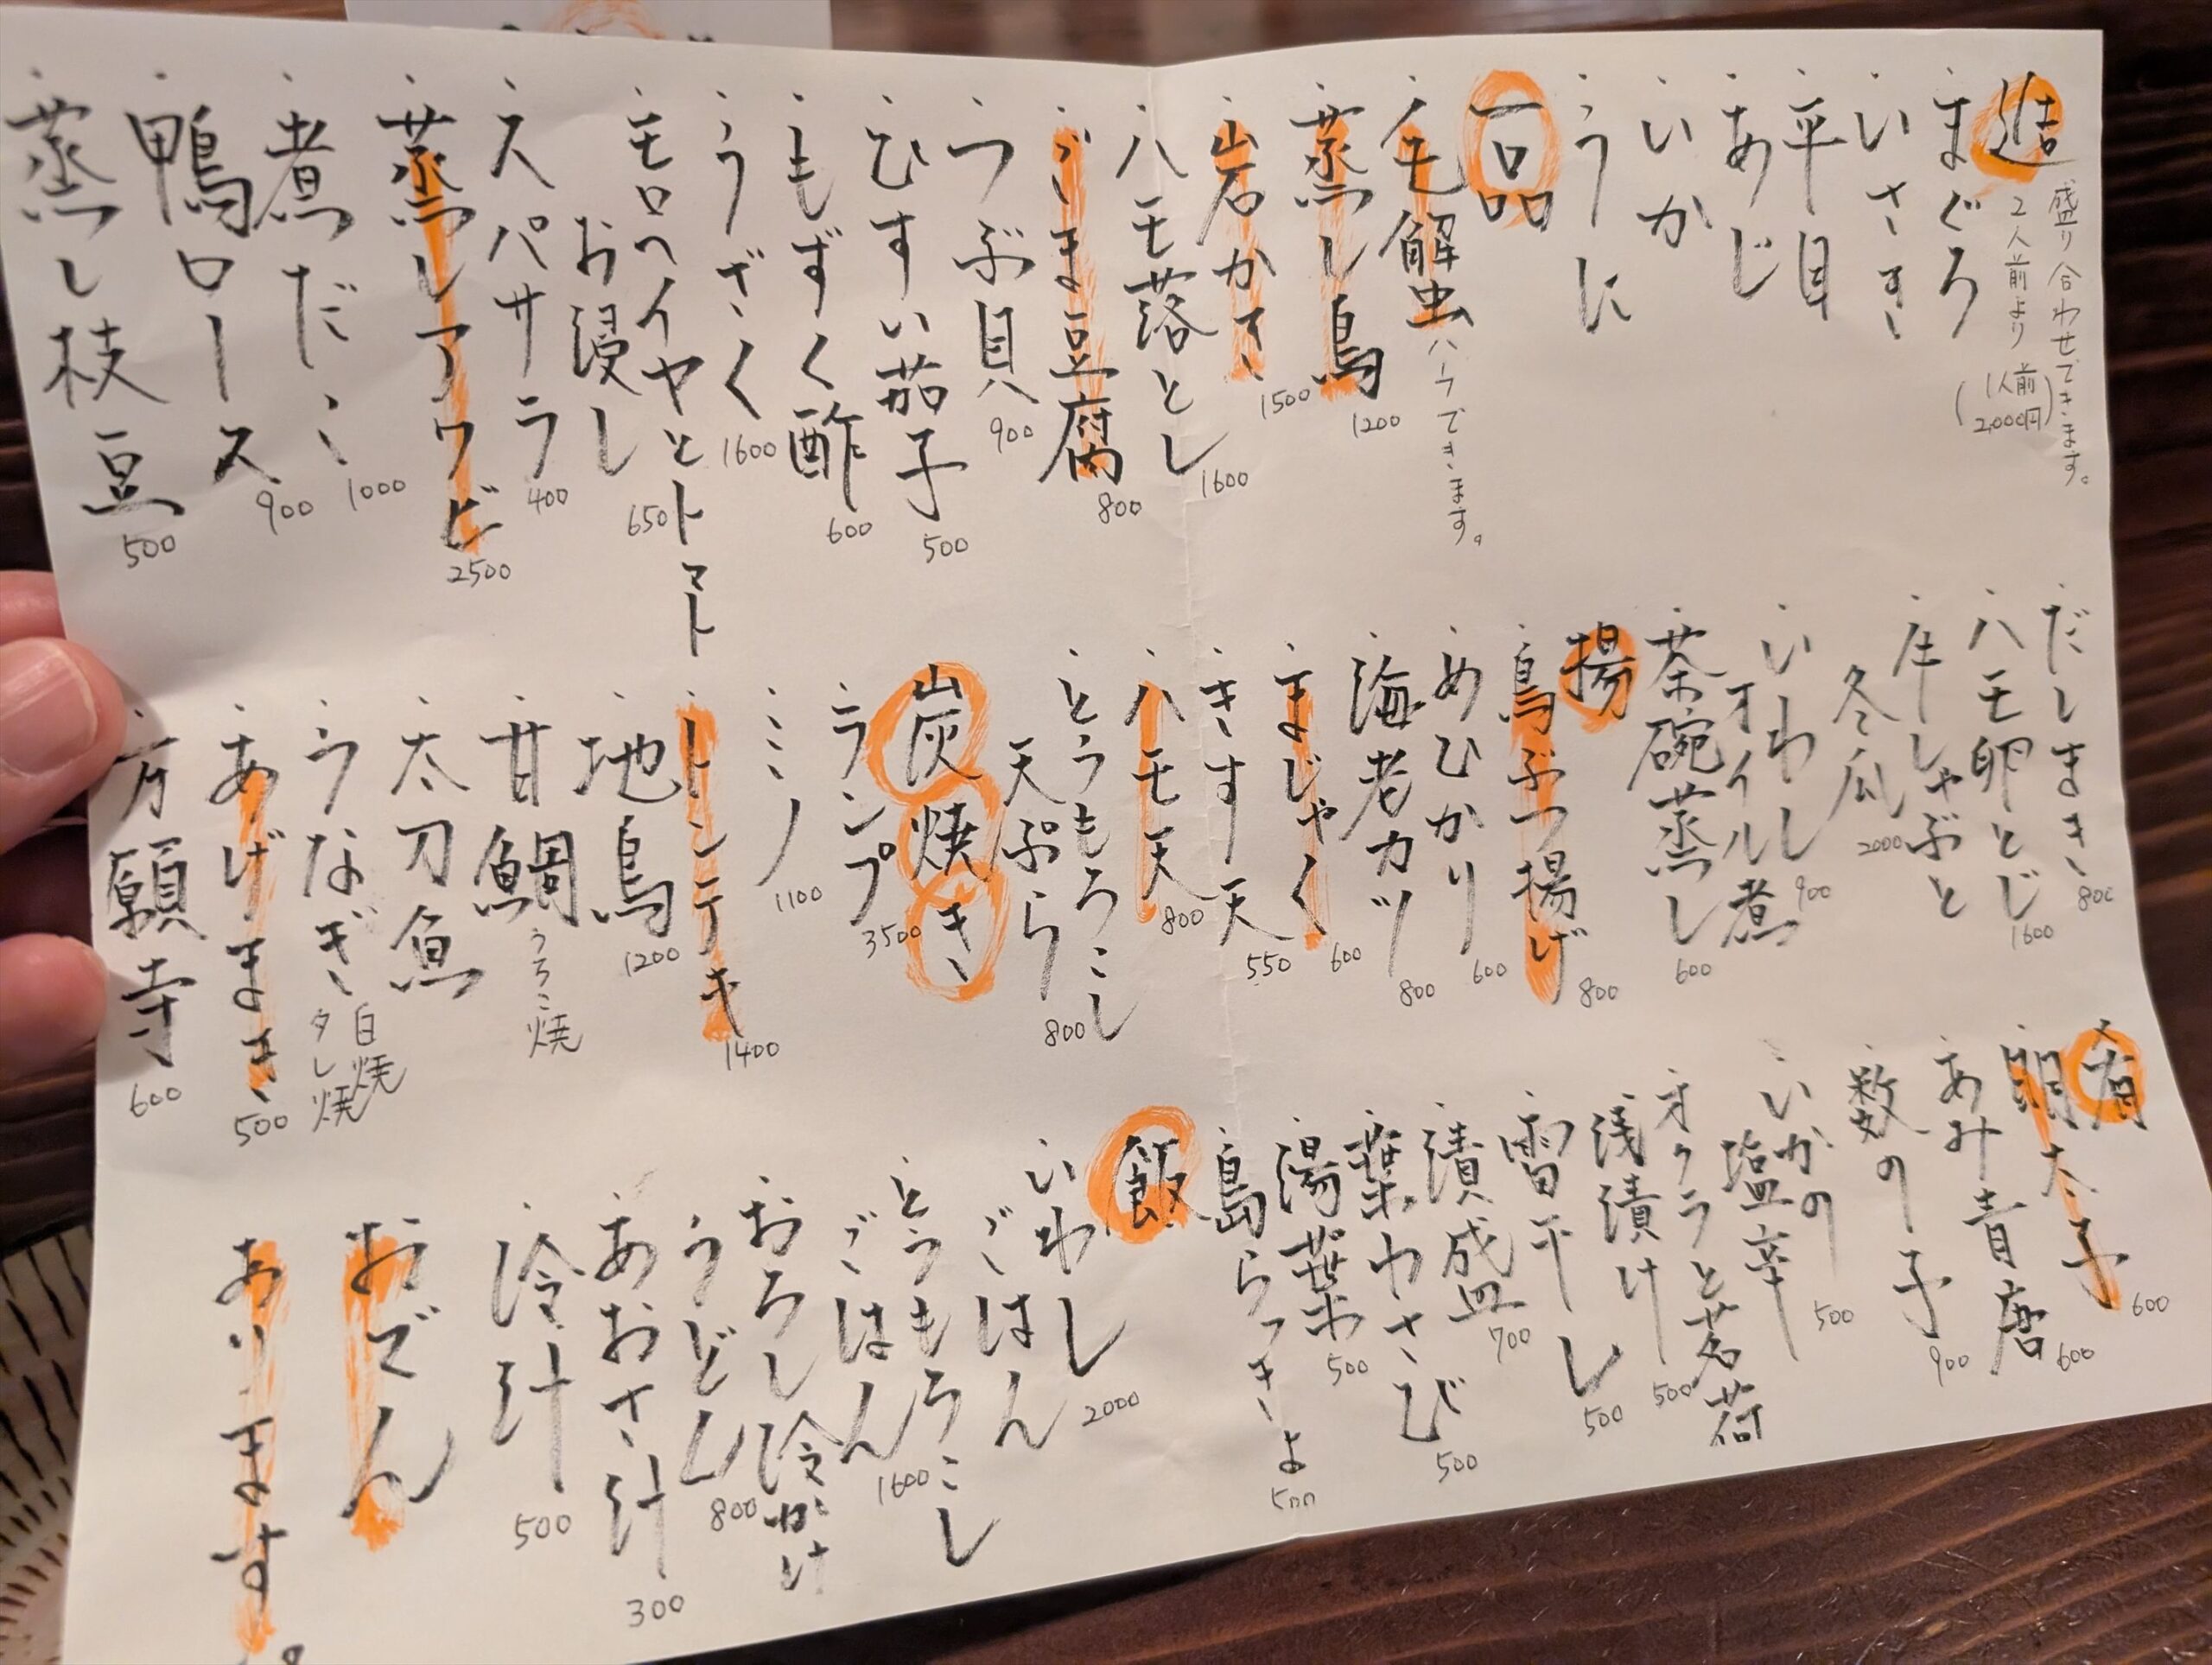 造
盛り合わせできます。
2人前より
(1人前
2,000円)
まぐろ
いさき
平目
あじ
いか
うに
一品
毛蟹 ハーフできます。
蒸し鳥 1200
岩かき 1500
ハモ落とし 1600
ごま豆腐 800
つぶ貝 900
ひすい茄子 500
もずく酢 600
うざく 1600
モロヘイヤとトマト
お浸し 650
スパサラ 400
蒸しアワビ 2500
煮だこ 1000
鴨ロース 900
蒸し枝豆 500
だしまき 800
ハモ卵とじ 1600
牛しゃぶと
冬瓜 2000
いわし
オイル煮 900
茶碗蒸し 600
揚
鳥ぶつ揚げ 800
めひかり 600
海老カツ 800
まじゃく 600
きす天 550
ハモ天 800
とうもろこし
天ぷら 800
炭焼き
ランプ 3500
ミノ 1100
トンテキ 1400
地鳥 1200
甘鯛 うろこ焼
太刀魚
うなぎ 白焼
タレ焼
あげまき 500
万願寺 600
肴
明太子 600
あみ青唐 600
数の子 900
いかの
塩辛 500
オクラと茗荷
浅漬け 500
雷干し 500
漬盛 700
葉わさび 500
湯葉 500
島らっきょ 500
飯
いわし
ごはん 2000
とうもろこし
ごはん 1600
おろし冷かけ
うどん 800
あおさ汁 300
冷汁 500
おでん
あります。